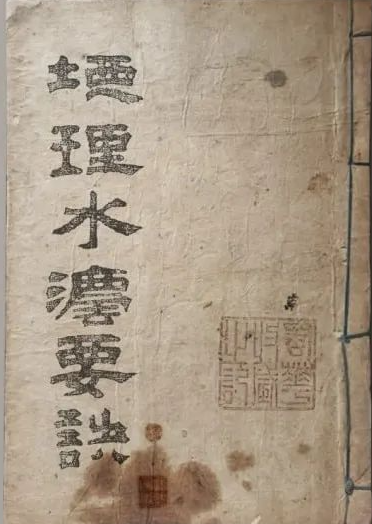 地理水灋要訣